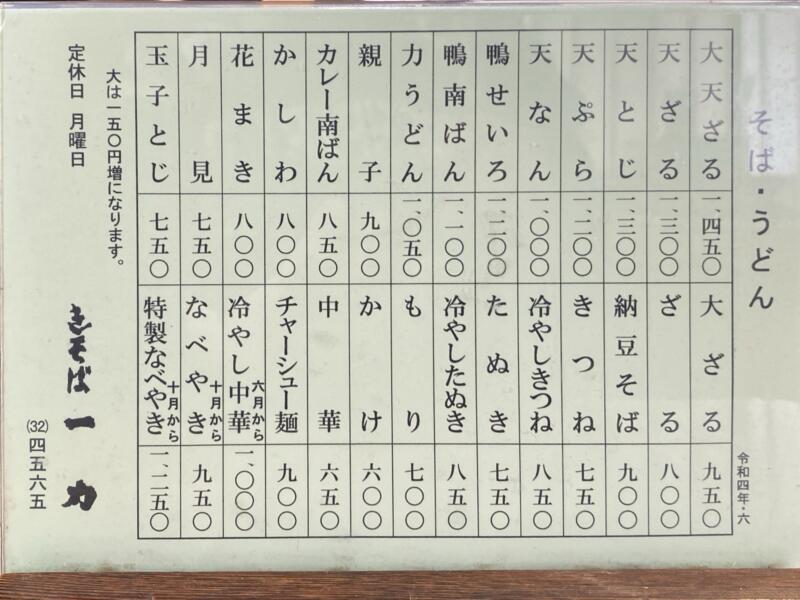 そば・うどん
大天ざる 一、四五〇
天ざる 一、三〇〇
天とじ 一、三〇〇
天ぷら 一、二〇〇
天なん 一、〇〇〇
鴨せいろ 一、二〇〇
鴨南ばん 一、一〇〇
力うどん 一、〇五〇
親子 九〇〇
カレー南ばん 八五〇
かしわ 八〇〇
花まき 八〇〇
月見 七五〇
玉子とじ 七五〇
令和四年・六
大ざる 九五〇
ざる 八〇〇
納豆そば 九〇〇
きつね 七五〇
冷やしきつね 八五〇
たぬき 七五〇
冷やしたぬき 八五〇
もり 七〇〇
かけ 六〇〇
中華 六五〇
チャーシュー麺 九〇〇
冷やし中華 六月から 一、〇〇〇
なべやき 十月から 九五〇
特製なべやき 十月から 一、二五〇
大は一五〇円増になります。
定休日 月曜日
きそば 一力
(32)四五六五